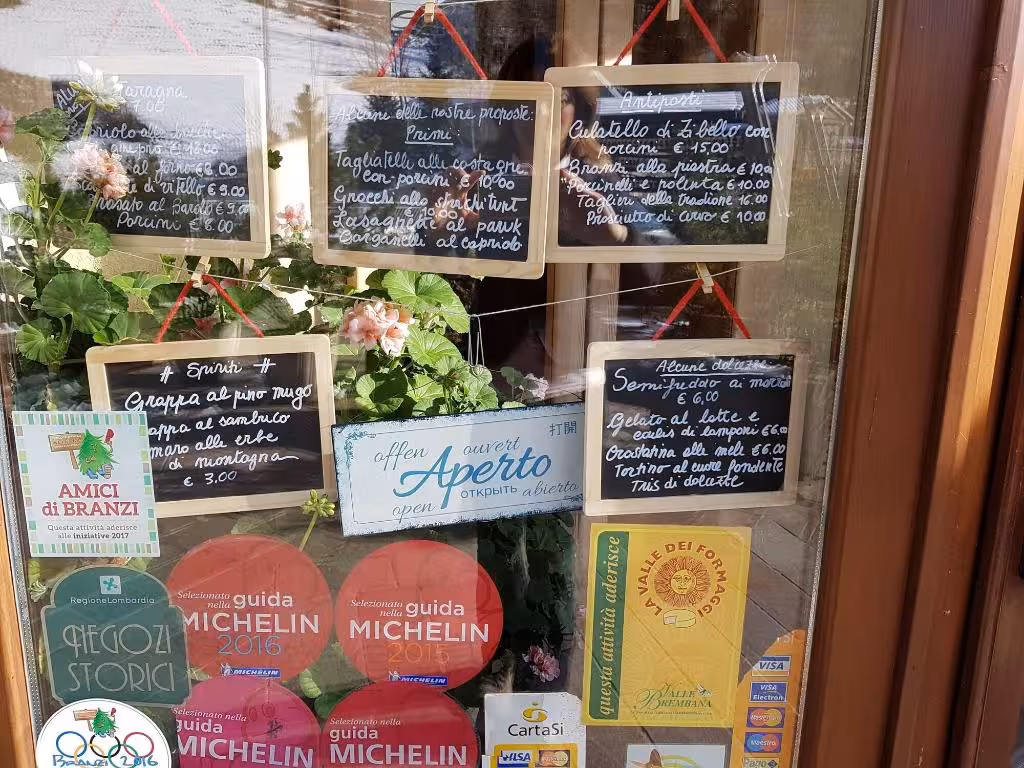 aragna
7.00
€ 16.00
al forno € 8.00
di vitello € 9.00
Brasato al Barolo € 9.00
Porcini € 6.00
Alcune delle nostre proposte:
Primi:
Tagliatelle alle castagne
con porcini € 10.00
Gnocchi allo
Lasagnette al
Garganelli al capriolo
Antipasti
Culatello di Zibello con
porcini € 15,00
Branzi alla piastra € 10.00
"Porcinelli" e polenta € 10.00
Taglieri della tradione 16.00
Prosciutto di cervo € 10.00
# Spiriti #
Grappa al pino mugo
appa al sambuco
maro alle erbe
di montagna
€ 3,00
Alcune dolcezze
Semifreddo ai
€ 6,00
Gelato al latte e
di lamponi € 6.00
Crostatina alle mele € 6.00
Tortino al cuore fondente
Tris di dolcezze
offen ouvert 打開
Aperto
открыть abierto
open
AMICI
di BRANZI
Questa attività aderisce
alle iniziative 2017
RegioneLombardia
NEGOZI
STORICI
BRANZI 2016
Selezionato
nella guida
MICHELIN
2016
MICHELIN
Selezionato
nella guida
MICHELIN
2015
MICHELIN
Selezionato nella
guida
MICHELIN
Selezionato nella
guida
MICHELIN
CartaSi
VISA
questa attività aderisce
LA VALLE DEI FORMAGGI
VALLE
BREMBANA
VISA
VISA
Electron
MasterCard
Maestro
Pago